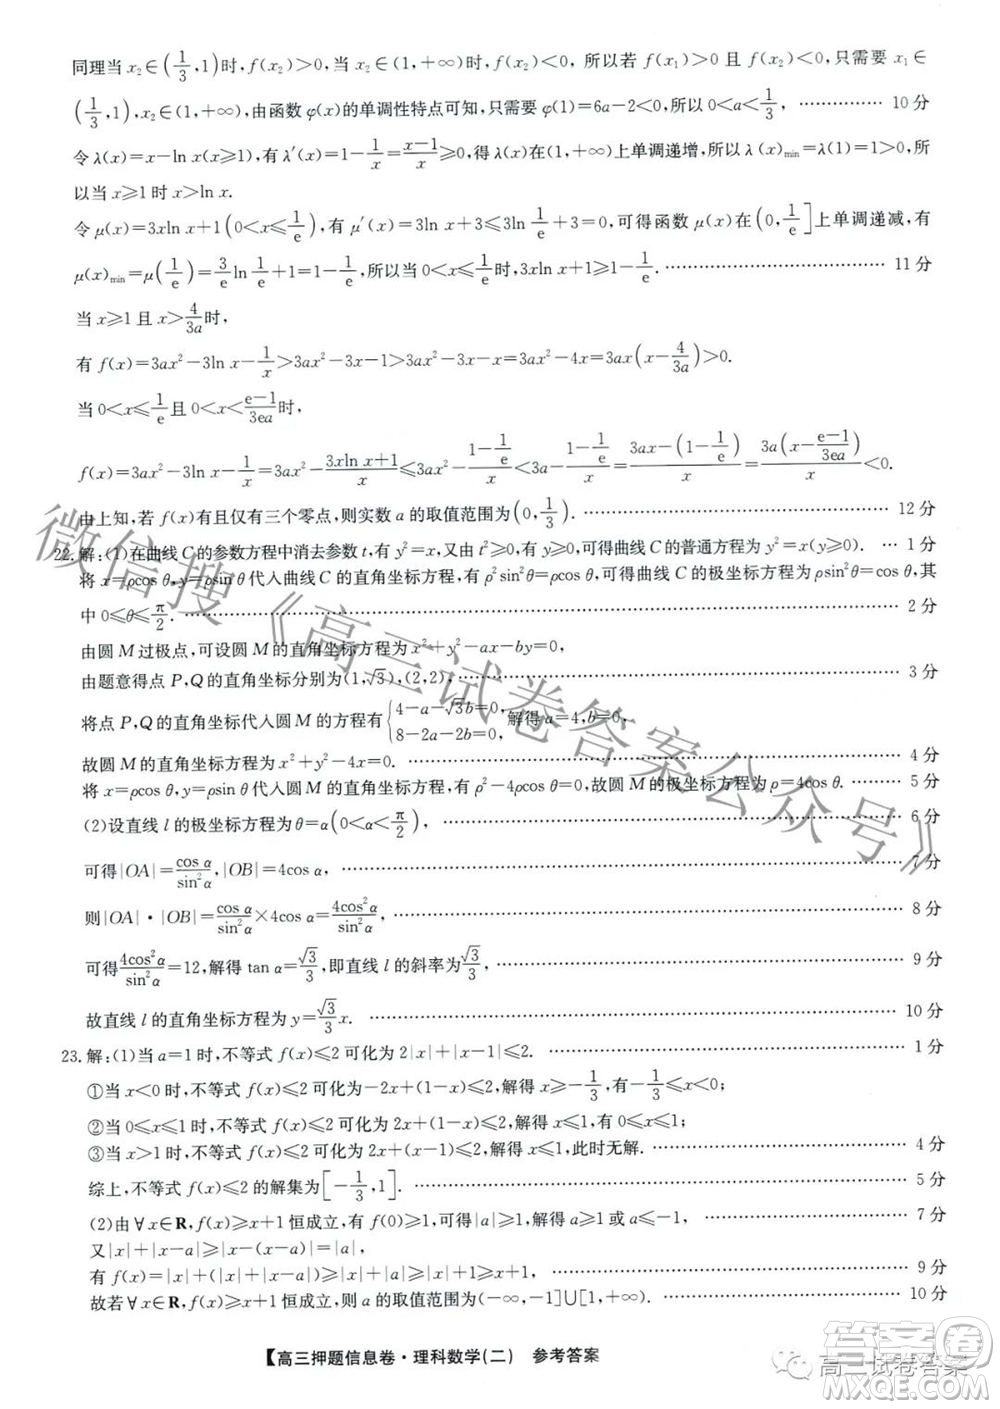 同理当 x₂∈(1/3,1)时,f(x₂)>0,当 x₂∈(1,+∞)时,f(x₂)<0, 所以若 f(x₁)>0 且 f(x₂)<0,只需要 x₁∈
(1/3,1),x₂∈(1,+∞),由函数 φ(x)的单调性特点可知,只需要 φ(1)=6a-2<0,所以 0<a<1/3, …………… 10 分
令 λ(x)=x-ln x(x≥1),有 λ′(x)=1-1/x=(x-1)/x≥0,得 λ(x)在(1,+∞)上单调递增,所以 λ(x)min=λ(1)=1>0,所
以当 x≥1 时 x>ln x.
令 μ(x)=3xln x+1(0<x≤1/e),有 μ′(x)=3ln x+3≤3ln 1/e+3=0,可得函数 μ(x)在(0,1/e]上单调递减,有
μ(x)min=μ(1/e)=3/e ln 1/e+1=1-3/e,所以当 0<x≤1/e时,3xln x+1≥1-1/e. …………………………… 11 分
当 x≥1 且 x>4/(3a)时,
有 f(x)=3ax²-3ln x-1/x>3ax²-3x-1/x>3ax²-3x-x=3ax²-4x=3ax(x-4/(3a))>0.
当 0<x≤1/e且 0<x<(e-1)/(3ea)时,
f(x)=3ax²-3ln x-1/x=3ax²-(3xln x+1)/x≤3ax²-(1-1/e)/x<3a-(1-1/e)/x=(3ax-(1-1/e))/x=3a(x-(e-1)/(3ea))/x<0.
由上知,若 f(x)有且仅有三个零点,则实数 a 的取值范围为(0,1/3). ………………………………… 12 分
22.解:(1)在曲线 C 的参数方程中消去参数 t,有 y²=x,又由 t²≥0,有 x≥0,可得曲线 C 的普通方程为 y²=x(x≥0). … 1 分
将 x=ρcos θ,y=ρsin θ 代入曲线 C 的直角坐标方程,有 ρ²sin²θ=ρcos θ,可得曲线 C 的极坐标方程为 ρsin²θ=cos θ,其
中 0≤θ≤π/2. ……………………………………………………………………………………… 2 分
由圆 M 过极点,可设圆 M 的直角坐标方程为 x²+y²-ax-by=0,
由题意得点 P,Q 的直角坐标分别为(1,√3),(2,2), …………………………………………………… 3 分
将点 P,Q 的直角坐标代入圆 M 的方程有{4-a-√3b=0, 8-2a-2b=0,解得 a=4,b=0,
故圆 M 的直角坐标方程为 x²+y²-4x=0. ………………………………………………………………… 4 分
将 x=ρcos θ,y=ρsin θ 代入圆 M 的直角坐标方程,有 ρ²-4ρcos θ=0,故圆 M 的极坐标方程为 ρ=4cos θ. ……… 5 分
(2)设直线 l 的极坐标方程为 θ=α(0<α<π/2), ……………………………………………………… 6 分
可得|OA|=cos α/sin²α,|OB|=4cos α, ………………………………………………………………… 7 分
则|OA|·|OB|=cos α/sin²α×4cos α=4cos²α/sin²α, …………………………………………………… 8 分
可得4cos²α/sin²α=12,解得 tan α=√3/3,即直线 l 的斜率为√3/3, ……………………………………… 9 分
故直线 l 的直角坐标方程为 y=√3/3 x. ………………………………………………………………… 10 分
23.解:(1)当 a=1 时,不等式 f(x)≤2 可化为 2|x|+|x-1|≤2. …………………………………………… 1 分
①当 x<0 时,不等式 f(x)≤2 可化为-2x+(1-x)≤2,解得 x≥-1/3,有-1/3≤x<0;
②当 0≤x≤1 时,不等式 f(x)≤2 可化为 2x+(1-x)≤2,解得 x≤1,有 0≤x≤1;
③当 x>1 时,不等式 f(x)≤2 可化为 2x+(x-1)≤2,解得 x≤1,此时无解. ……………………………… 4 分
综上,不等式 f(x)≤2 的解集为[-1/3,1]. ………………………………………………………………… 5 分
(2)由∀x∈R,f(x)≥x+1 恒成立,有 f(0)≥1,可得|a|≥1,解得 a≥1 或 a≤-1, ………………………… 7 分
又|x|+|x-a|≥|x-(x-a)|=|a|,
有 f(x)=|x|+(|x|+|x-a|)≥|x|+|a|≥|x|+1≥x+1, ……………………………………………… 9 分
故若∀x∈R,f(x)≥x+1 恒成立,则 a 的取值范围为(-∞,-1]∪[1,+∞). ……………………………… 10 分
【高三押题信息卷·理科数学(二) 参考答案】
微信搜《高三试卷答案公众号》
高三试卷答案
答案圈
MXQE.COM